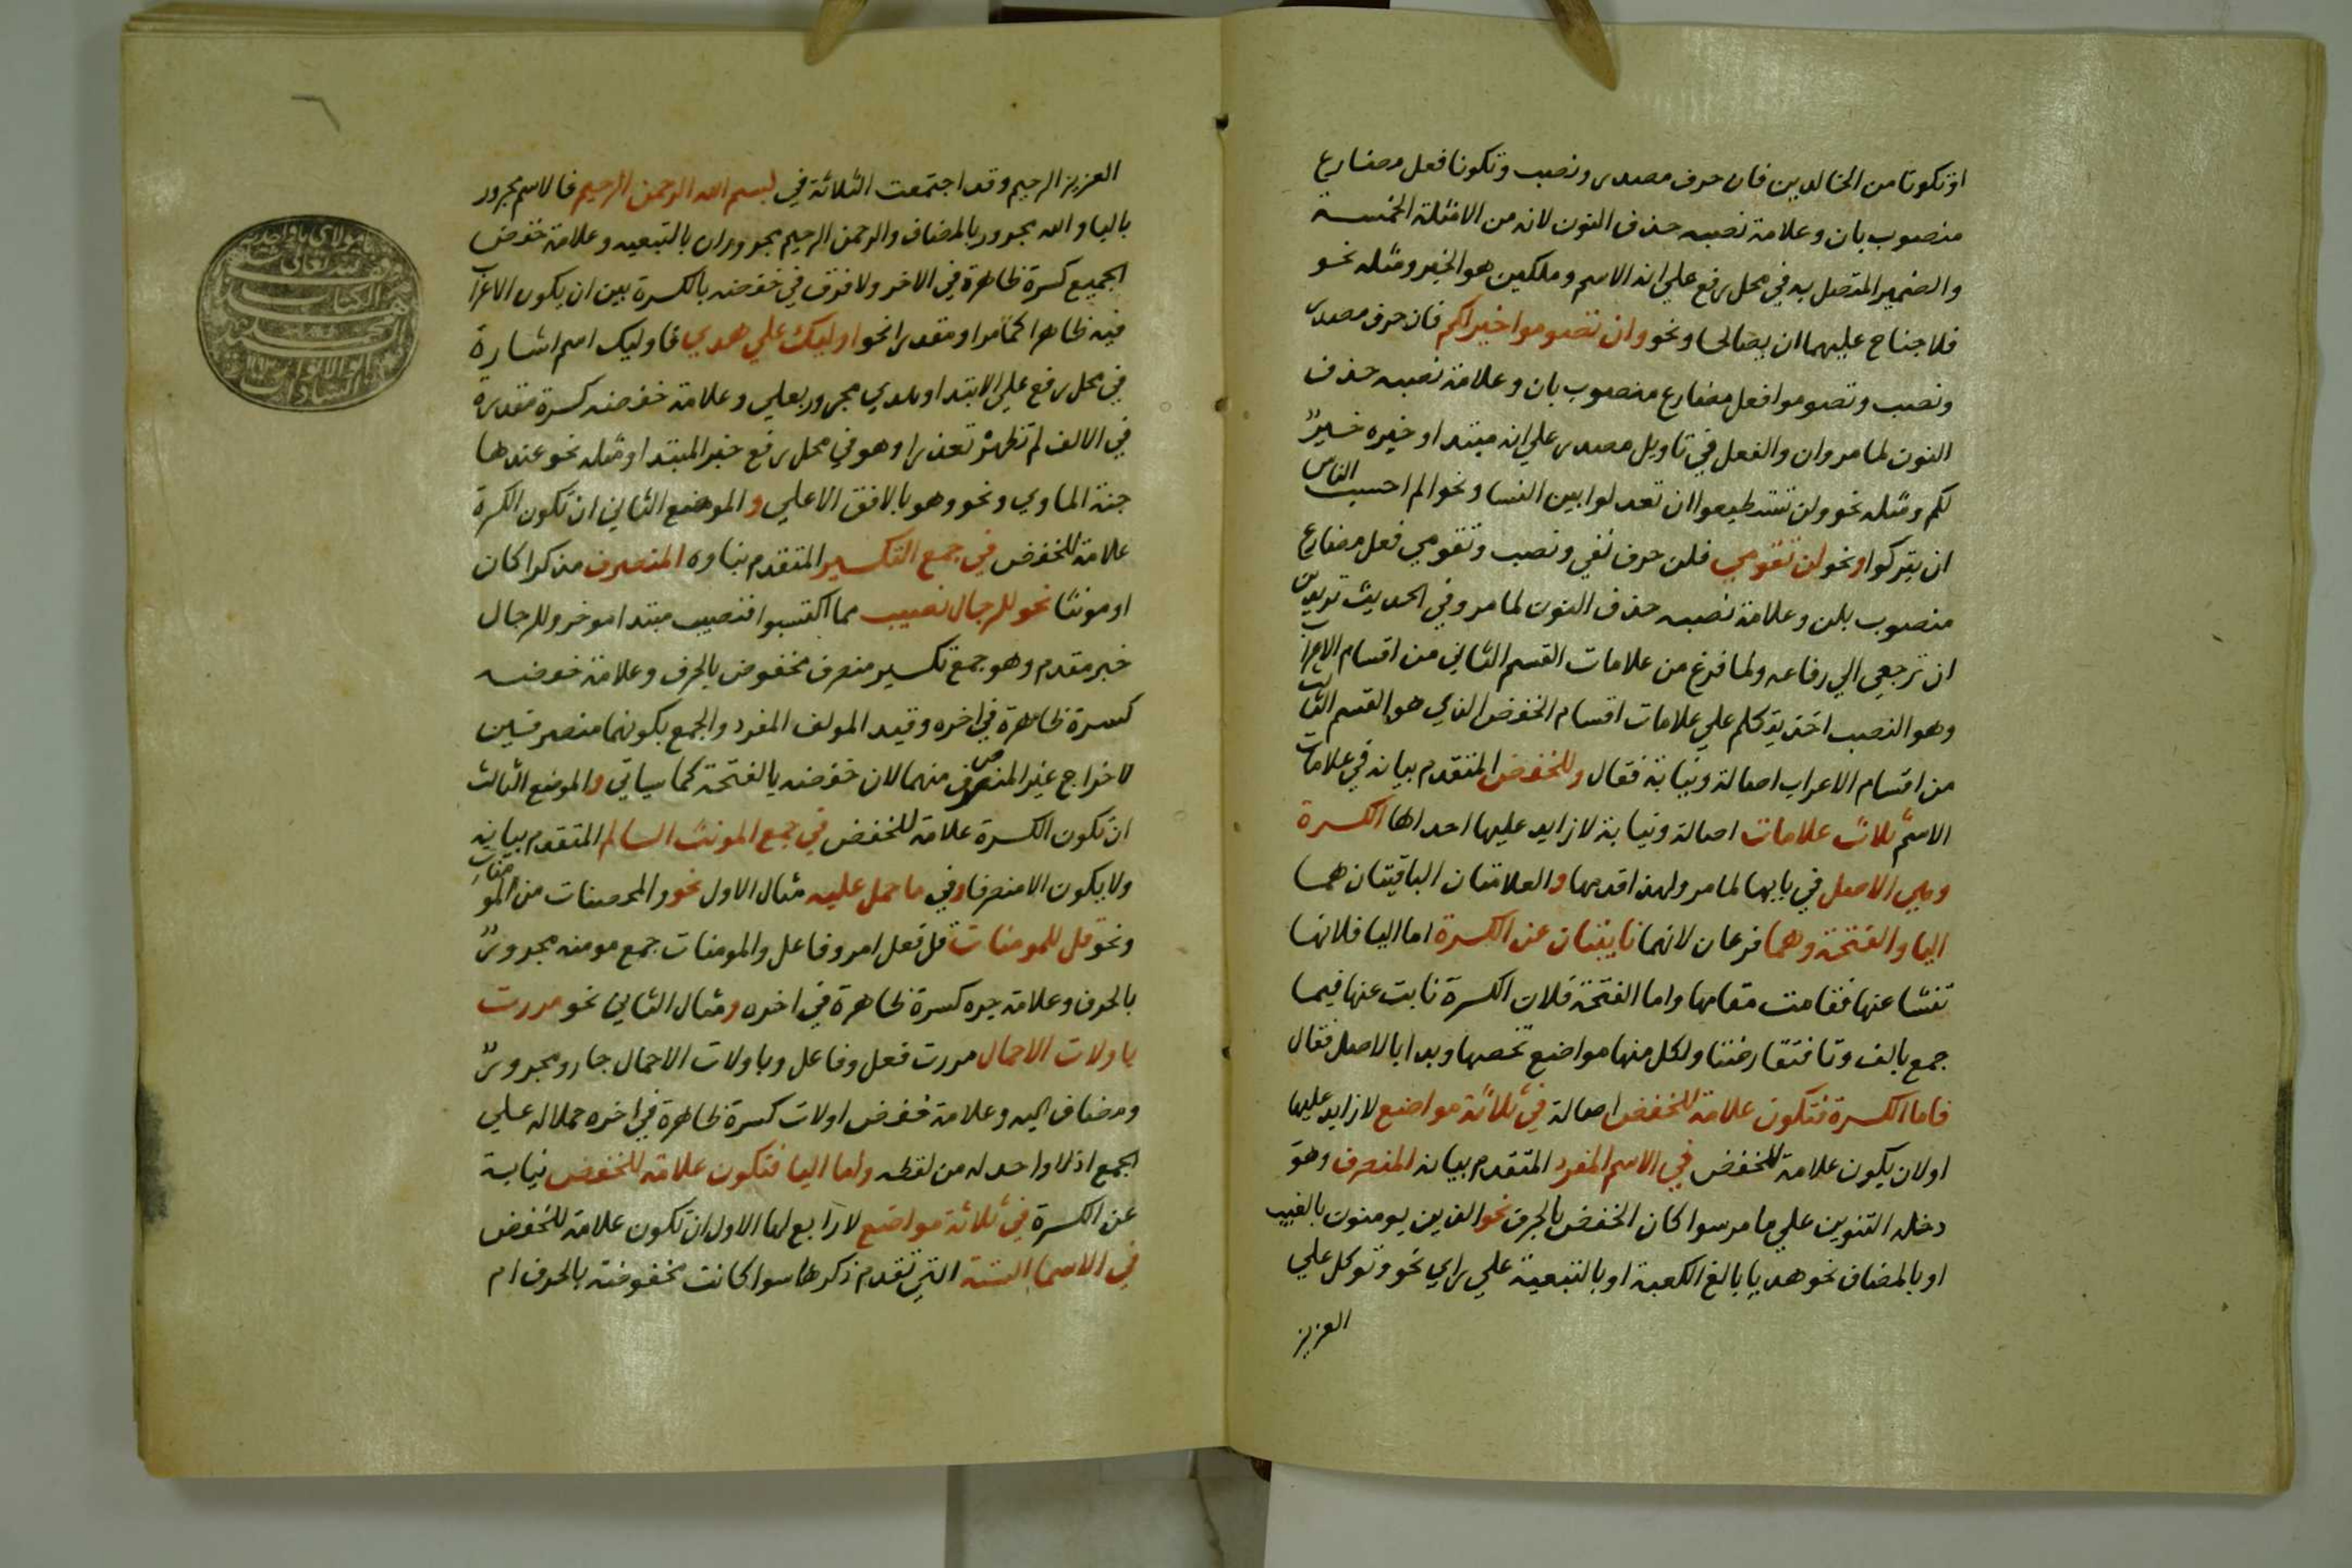 او تكونا من الخالدين فان حرف مصدر ونصب وتكونا فعل مضارع
منصوب بان وعلامة نصبه حذف النون لانه من الامثلة الخمسة
والضمير المتصل به في محل رفع علي انه الاسم وملكين هو الخبر ومثله نحو
فلا جناح عليهما ان يصالحا ونحو وان تصوموا خير لكم فان حرف مصدر
ونصب وتصوموا فعل مضارع منصوب بان وعلامة نصبه حذف
النون لما مر وان والفعل في تاويل مصدر علي انه مبتدا وخبره خير
لكم ومثله نحو ولن تستطيعوا ان تعدلوا بين النسا ونحو الم احسب الناس
ان يتركوا ونحو لن تقومي فلن حرف نفي ونصب وتقومي فعل مضارع
منصوب بلن وعلامة نصبه حذف النون لما مر وفي الحديث تريدين
ان ترجعي الي رفاعه ولما فرغ من علامات القسم الثاني من اقسام الاعراب
وهو النصب اخذ يتكلم علي علامات اقسام الخفض الذي هو القسم الثالث
من اقسام الاعراب اصالة ونيابة فقال وللخفض المتقدم بيانه في علامات
الاسم ثلاث علامات اصالة ونيابة لا زايد عليها احداها الكسرة
وهي الاصل في بابها لما مر ولهذا قدمها والعلامتان الباقيتان هما
اليا والفتحة وهما فرعان لانهما نايبتان عن الكسرة اما اليا فلانها
تنشا عنها فقامت مقامها واما الفتحة فلان الكسرة نابت عنها فيما
جمع بالف وتا فتقارضتا ولكل منها مواضع تخصها وبدا بالاصل فقال
فاما الكسرة فتكون علامة للخفض اصالة في ثلاثة مواضع لا زايد عليها
اولان يكون علامة للخفض في الاسم المفرد المتقدم بيانه المنصرف وهو
دخله التنوين علي ما مر سوا كان الخفض بالحرف نحو الذين يومنون بالغيب
او بالمضاف نحو هديا بالغ الكعبة او بالتبعية علي راي نحو وتوكل علي
العزيز
العزيز الرحيم وقد اجتمعت الثلاثة في بسم الله الرحمن الرحيم فالاسم مجرور
باليا والله مجرور بالمضاف والرحمن الرحيم مجروران بالتبعيه وعلامة خفض
الجميع كسرة ظاهرة في الاخر ولا فرق في خفضه بالكسرة بين ان يكون الاعراب
فيه ظاهرا كما مر او مقدرا نحو اوليك علي هدي فاوليك اسم اشارة
في محل رفع علي الابتدا وهدي مجرور بعلي وعلامة خفضه كسرة مقدرة
في الالف لم تظهر تعذرا وهو في محل رفع خبر المبتدا ومثله نحو عندها
جنة الماوي ونحو وهو بالافق الاعلي والموضع الثاني ان تكون الكسرة
علامة للخفض في جمع التكسير المتقدم بناوه المنصرف مذكرا كان
او مونثا نحو للرجال نصيب مما اكتسبوا فنصيب مبتدا موخر وللرجال
خبر مقدم وهو جمع تكسير منصرف مخفوض بالحرف وعلامة خفضه
كسرة ظاهرة في اخره وقيد المولف المفرد والجمع بكونهما منصرفين
لاخراج غير المنصرف منهما لان خفضه بالفتحة كما سياتي والموضع الثالث
ان تكون الكسرة علامة للخفض في جمع المونث السالم المتقدم بيانه
ولا يكون الا منصرفا وفي ما حمل عليه مثال الاول نحو والمحصنات من المومنات
ونحو قل للمومنات قل فعل امر وفاعل والمومنات جمع مومنه مجرور
بالحرف وعلامة جره كسرة ظاهرة في اخره ومثال الثاني نحو مررت
باولات الاحمال مررت فعل وفاعل وباولات الاحمال جار ومجرور
ومضاف اليه وعلامة خفض اولات كسرة ظاهرة في اخره حملا له علي
الجمع اذ لا واحد له من لفظه واما اليا فتكون علامة للخفض نيابة
عن الكسرة في ثلاثة مواضع لا رابع لها الاول ان تكون علامة للخفض
في الاسما الستة التي تقدم ذكرها سوا كانت مخفوضة بالحرف ام